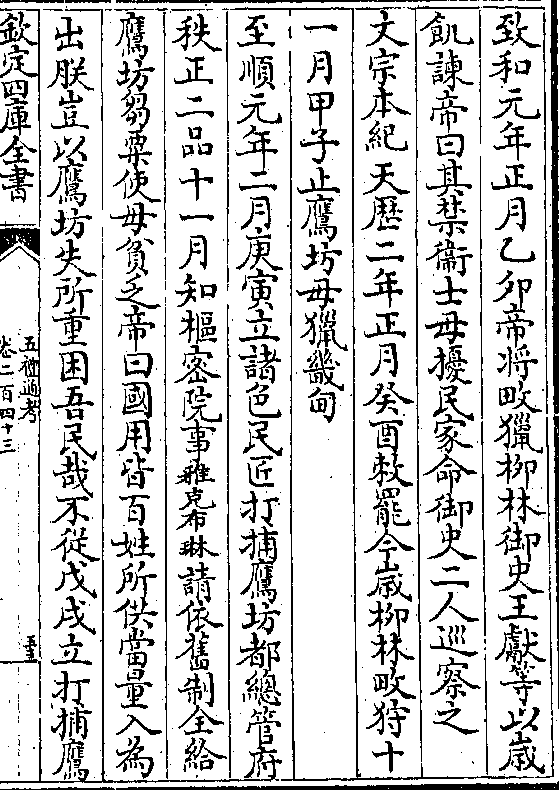 致和元年正月乙卯帝將畋獵柳林御史王獻等以歲
飢諫帝曰其禁衛士毋擾民家命御史二人巡察之
文宗本紀天歷二年正月癸酉敕罷今歲柳林畋狩十
一月甲子止鷹坊毋獵畿甸
至順元年二月庚寅立諸色民匠打捕鷹坊都總管府
秩正二品十一月知樞密院事雅克布琳請依舊制全給
鷹坊芻粟使毋貧乏帝曰國用皆百姓所供當量入為
出朕豈以鷹坊失所重困吾民哉不從戊戌立打捕鷹
欽定四庫全書
五禮通考
卷二百四十三